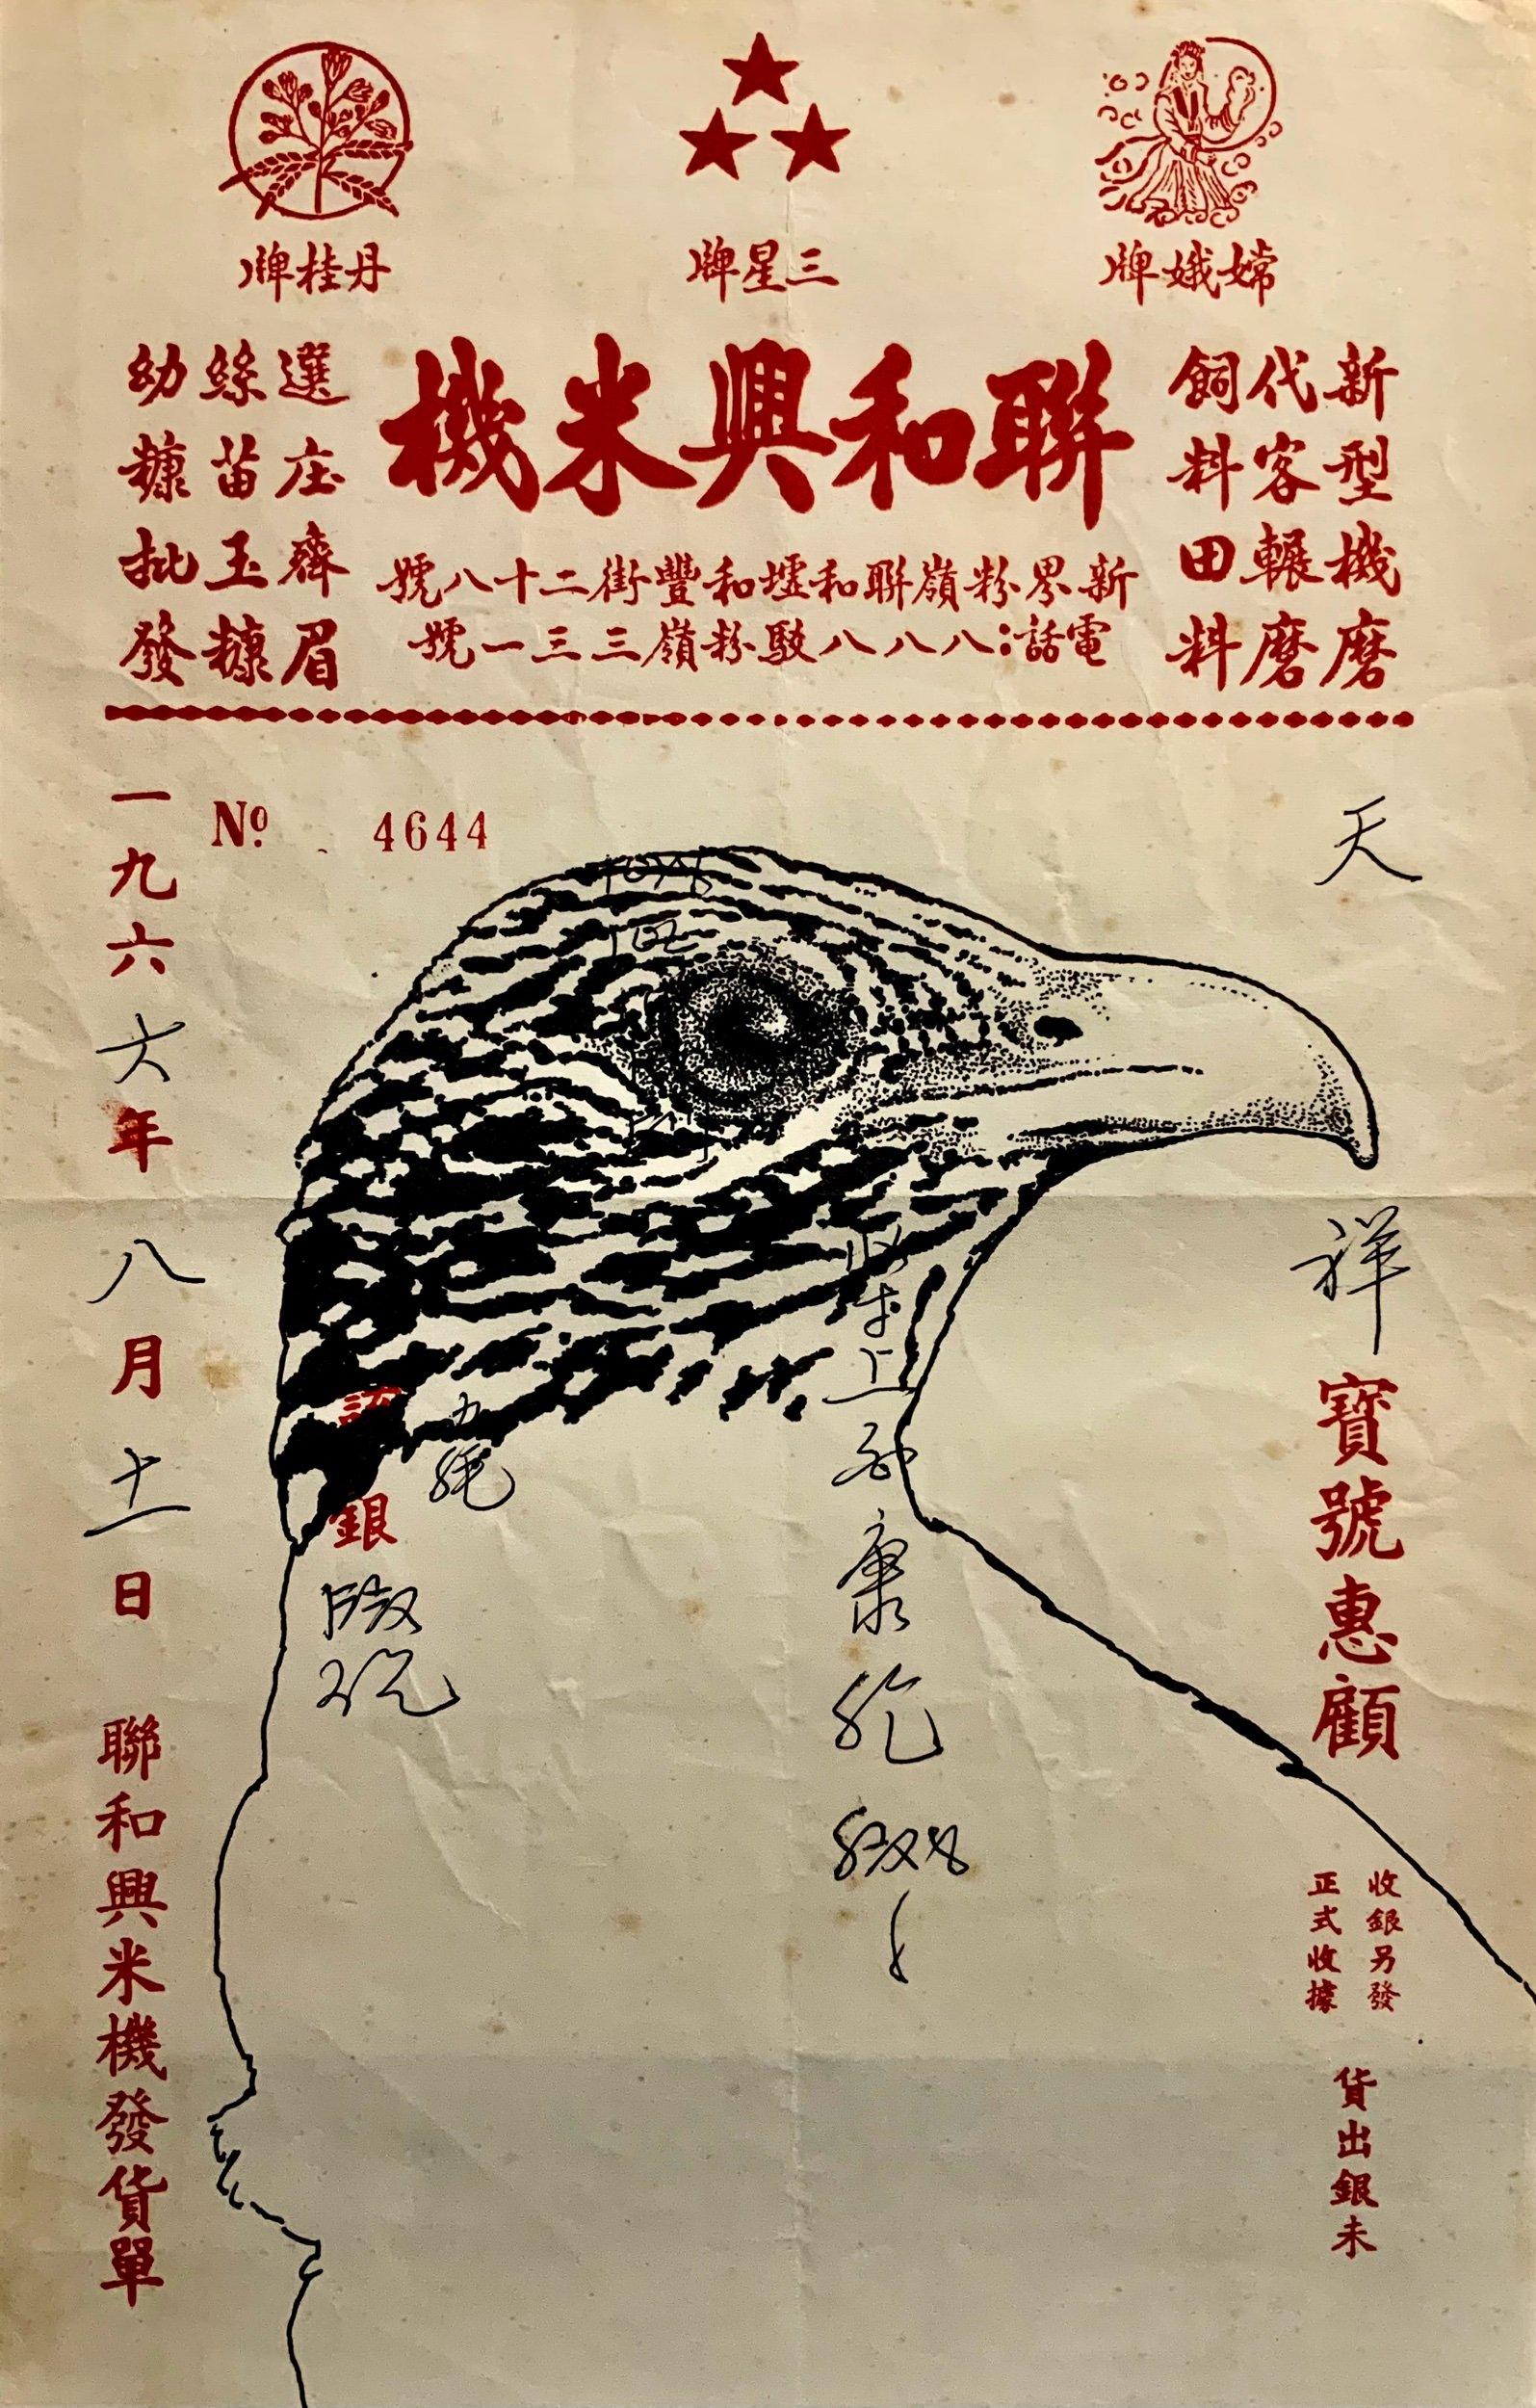 嫦娥牌
三星牌
丹桂牌
新型機磨
代客輾磨
飼料田料
聯和興米機
新界粉嶺聯和墟和豐街二十八號
電話：八八八駁粉嶺三三一號
選庄齊眉
絲苗玉糠
幼糠批發
No. 4644
天祥寶號惠顧
收銀另發
正式收據
貨出銀未
上
康
銀
一九六六年八月十一日
聯和興米機發貨單